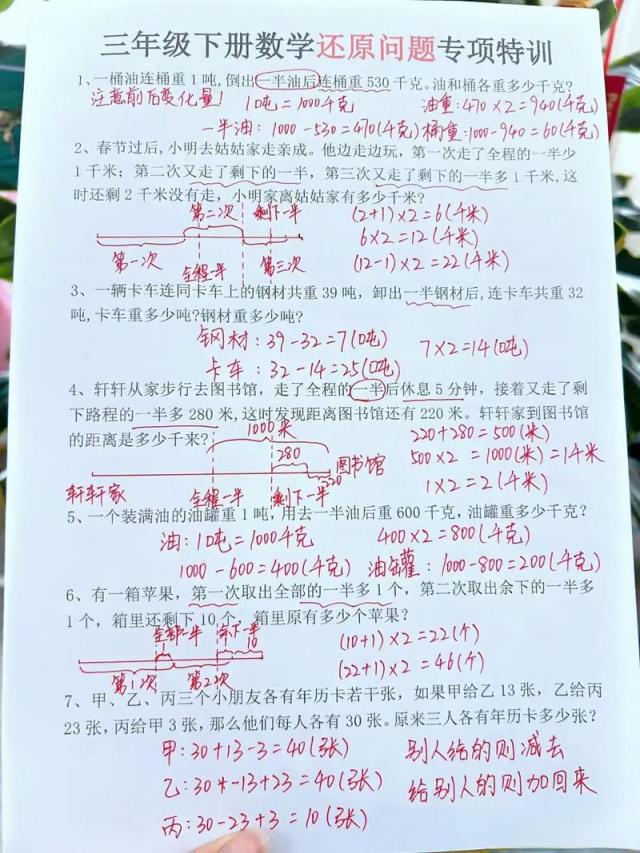 三年级下册数学还原问题专项特训
1、一桶油连桶重1吨,倒出一半油后连桶重530千克。油和桶各重多少千克?
注意前后变化量! 1吨=1000千克 油重:470×2=940(千克)
一半油:1000-530=470(千克) 桶重:1000-940=60(千克)
2、春节过后,小明去姑姑家走亲戚。他边走边玩,第一次走了全程的一半少
1千米;第二次又走了剩下的一半,第三次又走了剩下的一半多1千米,这
时还剩2千米没有走,小明家离姑姑家有多少千米?
第二次 剩下一半 (2+1)×2=6(千米)
6×2=12(千米)
第一次 全程一半 第三次 (12-1)×2=22(千米)
3、一辆卡车连同卡车上的钢材共重39吨,卸出一半钢材后,连卡车共重32
吨,卡车重多少吨?钢材重多少吨?
钢材:39-32=7(吨) 7×2=14(吨)
卡车:32-14=25(吨)
4、轩轩从家步行去图书馆,走了全程的一半后休息5分钟,接着又走了剩
下路程的一半多280米,这时发现距离图书馆还有220米。轩轩家到图书馆
的距离是多少千米?
1000米 220+280=500(米)
280 500×2=1000(米)=1千米
220 图书馆 1×2=2(千米)
轩轩家 全程一半 剩下一半
5、一个装满油的油罐重1吨,用去一半油后重600千克,油罐重多少千克?
油:1吨=1000千克 400×2=800(千克)
1000-600=400(千克) 油罐:1000-800=200(千克)
6、有一箱苹果,第一次取出全部的一半多1个,第二次取出余下的一半多
1个,箱里还剩下10个,箱里原有多少个苹果?
全部一半 余下一半 10 (10+1)×2=22(个)
第1次 第2次 (22+1)×2=46(个)
7、甲、乙、丙三个小朋友各有年历卡若干张,如果甲给乙13张,乙给丙
23张,丙给甲3张,那么他们每人各有30张。原来三人各有年历卡多少张?
甲:30+13-3=40(张) 别人给的则减去
乙:30-13+23=40(张) 给别人的则加回来
丙:30-23+3=10(张)